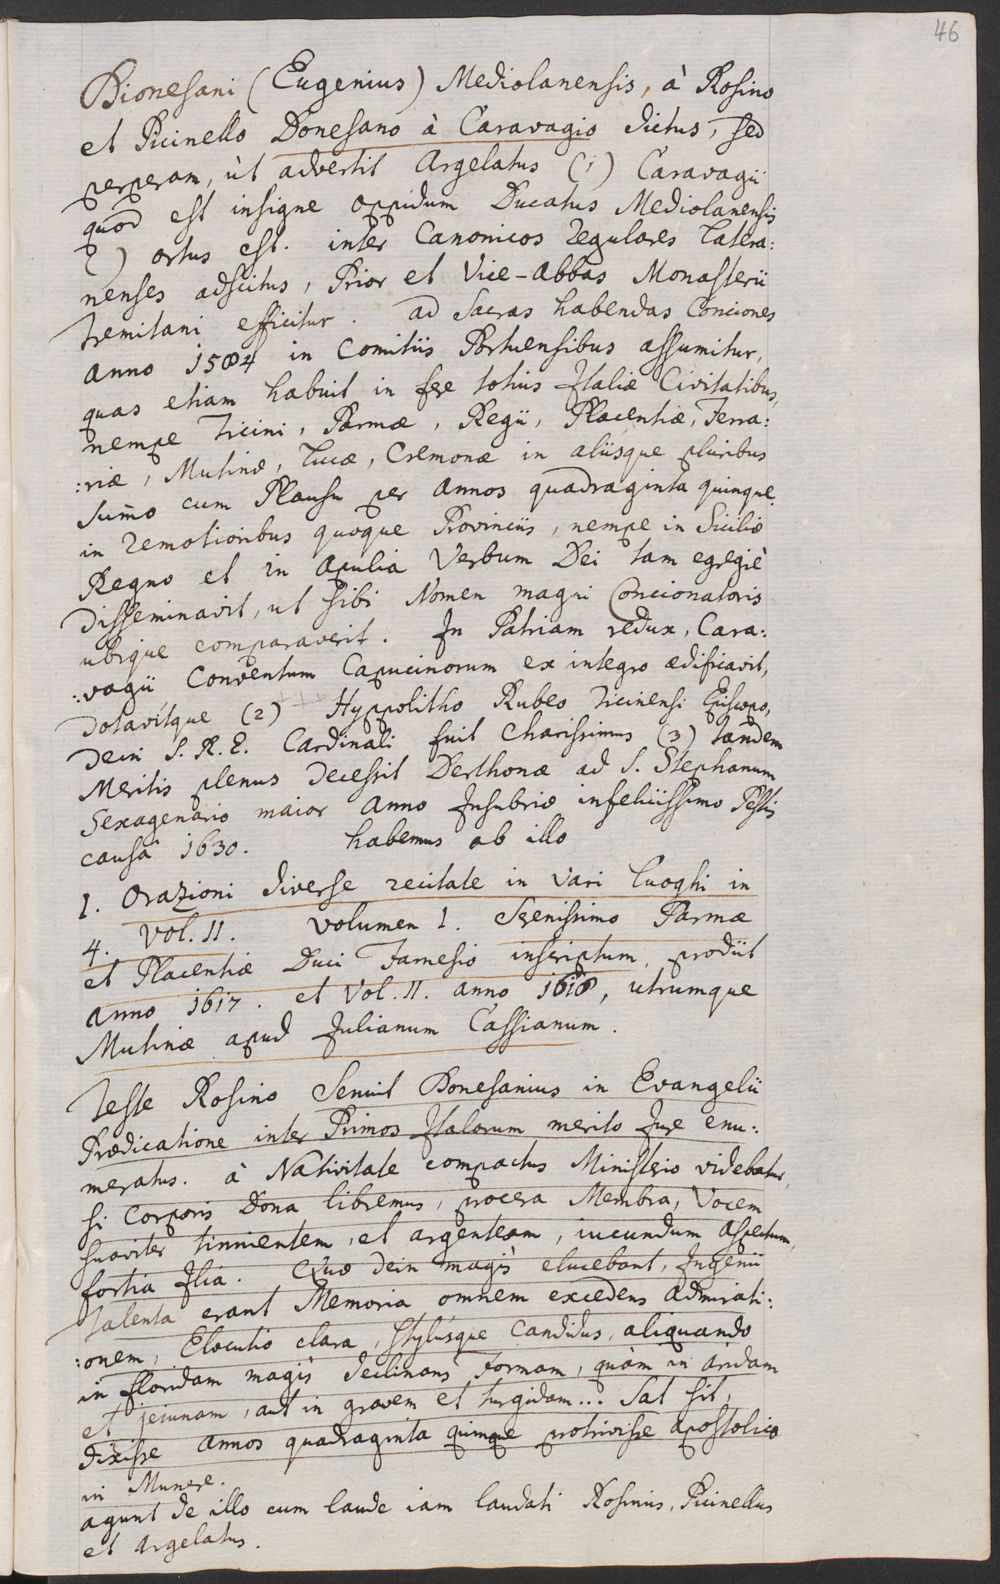 46
Bionesani (Eugenius) Mediolanensis, à Rosino
et Picinello Donesano à Caravagio dictus, sed
perperam, ùt advertit Argelatus (1) Caravagii
quod est insigne oppidum Ducatus Mediolanensis
( ) ortus est. inter Canonicos Regulares Latera:
nenses adscitus, Prior et Vice-Abbas Monasterii
Tremitani efficitur. ad Sacras habendas Conciones
anno 1584 in Comitiis Portuensibus assumitur,
quas etiam habuit in fere totius Italiæ Civitatibus,
nempe Ticini, Parmæ, Regii, Placentiæ, Ferra:
:riæ, Mutinæ, Lucæ, Cremonæ in aliisque pluribus
sum̄o cum Plausu per Annos quadraginta quinque.
in remotioribus quoque Provinciis, nempe in Siciliæ
Regno et in Apulia Verbum Dei tam egregiè
disseminavit, ut sibi Nomen magni Concionatoris
ubique comparaverit. In Patriam redux, Cara:
:vagii Conventum Capucinorum ex integro ædificavit,
dotavitque (2) Hyppolitho Rubeo Ticinensi Episcopo,
dein S. R. E. Cardinali fuit charissimus (3) tandem
Meritis plenus decessit Derthonæ ad S. Stephanum
Sexagenario maior Anno Insubriæ infeliciissimo Pestis
causâ 1630. habemus ab illo
1. Orazioni diverse recitate in vari luoghi in
4. Vol. II. Volumen I. Serenissimo Parmæ
et Placentiæ Duci Farnesio inscriptum, prodiit
anno 1617. et Vol. II. anno 1618, utrumque
Mutinæ apud Julianum Cassianum.
Teste Rosino Senuit Bonesanius in Evangelii
Prædicatione inter Primos Italorum merito Jure enu:
meratus. à Nativitate compactus Ministerio videbatur,
si Corporis Dona libremus, procera Membra, Vocem
suaviter tinnientem, et argenteam, iucundum Aspectum,
fortia Ilia. Quæ dein magis elucebant, Ingenii
Talenta erant Memoria omnem excedens admirati:
:onem, Elocutio clara, Stylusque Candidus, aliquando
in floridam magis declinans Formam, quàm in Aridam
et jeiunam, aut in gravem et turgidam... Sat sit,
dixisse annos quadraginta quinque protrivisse Apostolico
in Munere.
agunt de illo cum laude iam laudati Rosinus, Picinellus
et Argelatus.